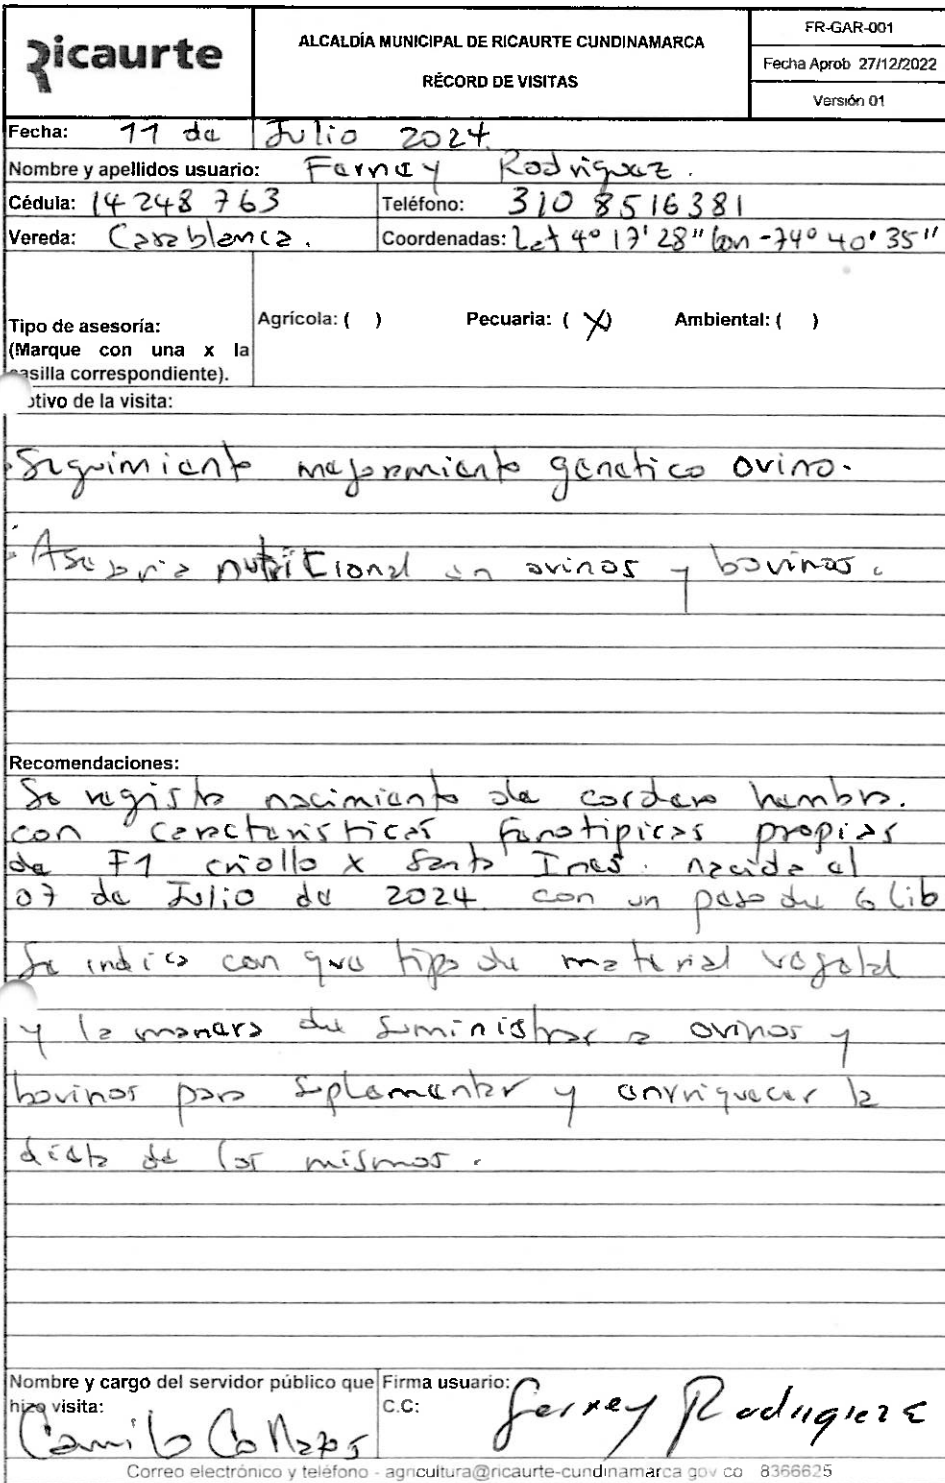 Ricaurte
ALCALDÍA MUNICIPAL DE RICAURTE CUNDINAMARCA
RÉCORD DE VISITAS
FR-GAR-001
Fecha Aprob 27/12/2022
Versión 01
Fecha: 11 de Julio 2024.
Nombre y apellidos usuario: Farney Rodriguez.
Cédula: 14 248 763 Teléfono: 310 8516381
Vereda: Casablanca. Coordenadas: Lat 4° 17' 28" lon -74° 40' 35"
Tipo de asesoría:
(Marque con una x la
casilla correspondiente).
Agrícola: ( ) Pecuaria: ( X ) Ambiental: ( )
otivo de la visita:
Seguimiento mejoramiento genetico ovino.
Asesoria nutricional en ovinos y bovinos.
Recomendaciones:
Se registra nacimiento de cordero hembra.
con caracteristicas fenotipicas propias
de F1 criollo x Santa Ines. nacida el
07 de Julio de 2024 con un peso de 6 lib
Se indica con que tipo de material vegetal
y la manera de suministrar a ovinos y
bovinos para suplementar y enrriquecer la
dieta de los mismos.
Nombre y cargo del servidor público que
hizo visita:
Camilo Collazos
Firma usuario:
C.C:
Farney Rodriguez
Correo electrónico y teléfono - agricultura@ricaurte-cundinamarca.gov.co 8366625